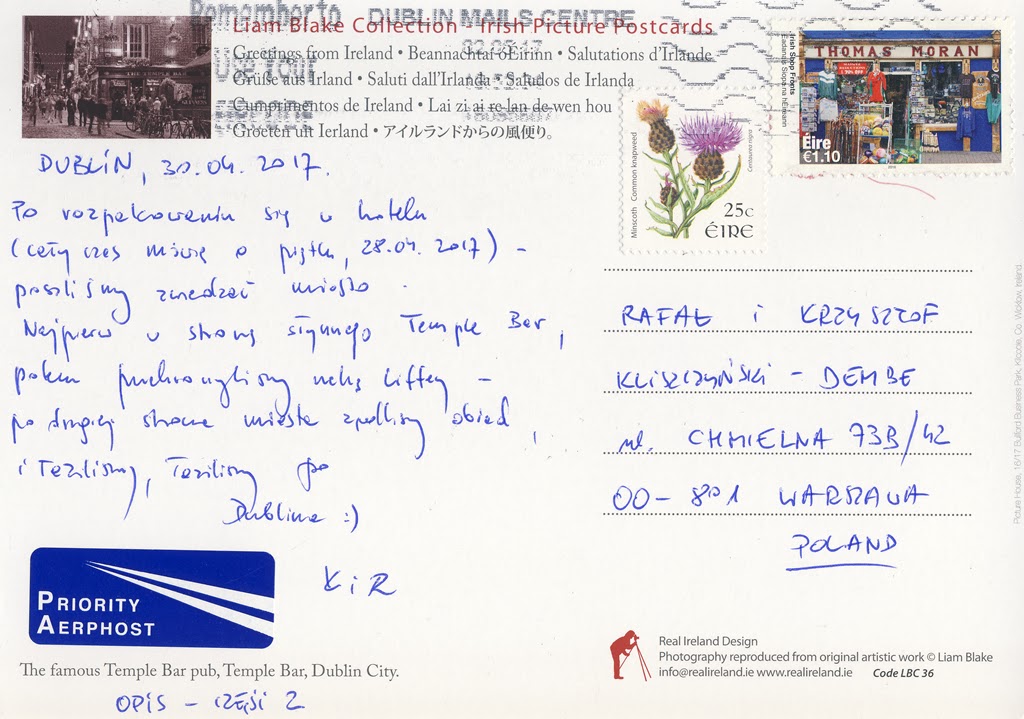 Remember to
use your
DUBLIN MAILS CENTRE
Liam Blake Collection - Irish Picture Postcards
Greetings from Ireland • Beannachtaí ó Éirinn • Salutations d'Irlande
Grüße aus Irland • Saluti dall'Irlanda • Saludos de Irlanda
Cumprimentos de Ireland • Lai zi ai re lan de wen hou
Groeten uit Ierland • アイルランドからの風便り。
THE TEMPLE BAR
Irish Shop Fronts
Éadanais Siopa na hÉireann
THOMAS MORAN
Éire
€1.10
Minscoth Common knapweed
Centaurea nigra
25c
ÉIRE
DUBLIN, 30.04.2017.
Po rozpakowaniu się w hotelu
(cały czas mówię o piątku, 28.04.2017) -
poszliśmy zwiedzać miasto.
Najpierw w stronę słynnego Temple Bar,
potem przekroczyliśmy rzekę Liffey -
po drugiej stronie miasta zjedliśmy obiad,
i łaziliśmy, łaziliśmy po
Dublinie :)
K i R
RAFAŁ i KRZYSZTOF
KLISZCZYŃSKI - DEMBE
ul. CHMIELNA 73B/42
00-801 WARSZAWA
POLAND
PRIORITY
AERPHOST
The famous Temple Bar pub, Temple Bar, Dublin City.
OPIS - CZĘŚĆ 2
Real Ireland Design
Photography reproduced from original artistic work © Liam Blake
info@realireland.ie www.realireland.ie Code LBC 36
Picture House, 16/17 Bulford Business Park, Kilcoole, Co. Wicklow, Ireland.